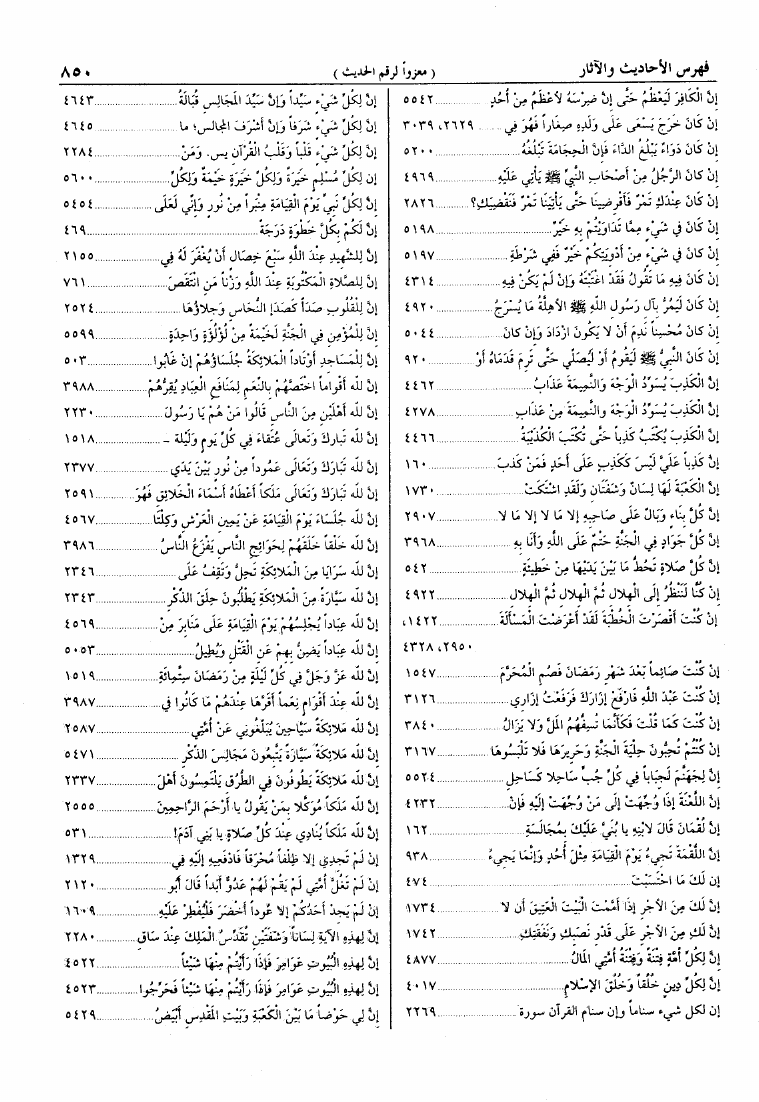 فهرس الأحاديث والآثار ( معزواً لرقم الحديث ) ٨٥٠
إِنَّ الْكَافِرَ لَيَعْظُمُ حَتَّى إِنَّ ضِرْسَهُ لأَعْظَمُ مِنْ أُحُدٍ ٥٥٤٢
إِنْ كَانَ خَرَجَ يَسْعَى عَلَى وَلَدِهِ صِغَاراً فَهُوَ فِي ٢٦٢٩، ٣٠٣٩
إِنْ كَانَ دَوَاءٌ يَبْلُغُ الدَّاءَ فَإِنَّ الْحِجَامَةَ تَبْلُغُهُ ٥٢٠٠
إِنْ كَانَ الرَّجُلُ مِنْ أَصْحَابِ النَّبِيِّ ﷺ يَأْتِي عَلَيْهِ ٤٩٦٩
إِنْ كَانَ عِنْدَكِ تَمْرٌ فَأَقْرِضِينَا حَتَّى يَأْتِيَنَا تَمْرٌ فَنَقْضِيَكِ؟ ٢٨٢٦
إِنْ كَانَ فِي شَيْءٍ مِمَّا تَدَاوَيْتُمْ بِهِ خَيْرٌ ٥١٩٨
إِنْ كَانَ فِي شَيْءٍ مِنْ أَدْوِيَتِكُمْ خَيْرٌ فَفِي شَرْطَةِ ٥١٩٧
إِنْ كَانَ فِيهِ مَا تَقُولُ فَقَدْ اغْتَبْتَهُ وَإِنْ لَمْ يَكُنْ فِيهِ ٤٣١٤
إِنْ كَانَ لَيَمُرُّ بِآلِ رَسُولِ اللَّهِ ﷺ الأَهِلَّةُ مَا يُسْرَجُ ٤٩٢٠
إِنْ كَانَ مُحْسِناً نَدِمَ أَنْ لَا يَكُونَ ازْدَادَ وَإِنْ كَانَ ٥٠٤٤
إِنْ كَانَ النَّبِيُّ ﷺ لَيَقُومُ أَوْ لَيُصَلِّي حَتَّى تَرِمَ قَدَمَاهُ أَوْ ٩٢٠
إِنَّ الْكَذِبَ يُسَوِّدُ الْوَجْهَ وَالنَّمِيمَةَ عَذَابُ ٤٤٦٢
إِنَّ الْكَذِبَ يُسَوِّدُ الْوَجْهَ وَالنَّمِيمَةَ مِنْ عَذَابِ ٤٢٧٨
إِنَّ الْكَذِبَ يُكْتَبُ كَذِباً حَتَّى تُكْتَبَ الْكُذَيْبَةُ ٤٤٦٦
إِنَّ كَذِباً عَلَيَّ لَيْسَ كَكَذِبٍ عَلَى أَحَدٍ فَمَنْ كَذَبَ ١٦٠
إِنَّ الْكَعْبَةَ لَهَا لِسَانٌ وَشَفَتَانِ وَلَقَدِ اشْتَكَتْ ١٧٣٠
إِنَّ كُلَّ بِنَاءٍ وَبَالٌ عَلَى صَاحِبِهِ إِلا مَا لا إِلا مَا لا ٢٩٠٧
إِنَّ كُلَّ جَوَادٍ فِي الْجَنَّةِ حَتْمٌ عَلَى اللَّهِ وَأَنَا بِهِ ٣٩٦٨
إِنَّ كُلَّ صَلاةٍ تَحُطُّ مَا بَيْنَ يَدَيْهَا مِنْ خَطِيئَةٍ ٥٤٢
إِنْ كُنَّا لَنَنْظُرُ إِلَى الْهِلالِ ثُمَّ الْهِلالِ ثُمَّ الْهِلالِ ٤٩٢٢
إِنْ كُنْتَ أَقْصَرْتَ الْخُطْبَةَ لَقَدْ أَعْرَضْتَ الْمَسْأَلَةَ ١٤٢٢،
٢٩٥٠، ٤٣٢٨
إِنْ كُنْتَ صَائِماً بَعْدَ شَهْرِ رَمَضَانَ فَصُمِ الْمُحَرَّمَ ١٥٤٧
إِنْ كُنْتَ عَبْدَ اللَّهِ فَارْفَعْ إِزَارَكَ فَرَفَعْتُ إِزَارِي ٣١٢٦
إِنْ كُنْتَ كَمَا قُلْتَ فَكَأَنَّمَا تُسِفُّهُمُ الْمَلَّ وَلا يَزَالُ ٣٨٤٠
إِنْ كُنْتُمْ تُحِبُّونَ حِلْيَةَ الْجَنَّةِ وَحَرِيرَهَا فَلا تَلْبَسُوهَا ٣١٦٧
إِنَّ لِجَهَنَّمَ لَجِبَاباً فِي كُلِّ جُبٍّ سَاحِلا كَسَاحِلِ ٥٥٢٤
إِنَّ اللَّعْنَةَ إِذَا وُجِّهَتْ إِلَى مَنْ وُجِّهَتْ إِلَيْهِ فَإِنْ ٤٢٣٢
إِنَّ لُقْمَانَ قَالَ لابْنِهِ يَا بُنَيَّ عَلَيْكَ بِمُجَالَسَةِ ١٦٢
إِنَّ اللُّقْمَةَ تَجِيءُ يَوْمَ الْقِيَامَةِ مِثْلَ أُحُدٍ وَإِنَّمَا يَجِيءُ ٩٣٨
إِن لَكَ مَا احْتَسَبْتَ ٤٧٤
إِنَّ لَكَ مِنَ الأَجْرِ إِذَا أَمَّمْتَ الْبَيْتَ الْعَتِيقَ أَن لا ١٧٣٤
إِنَّ لَكِ مِنَ الأَجْرِ عَلَى قَدْرِ نَصَبِكِ وَنَفَقَتِكِ ١٧٤٢
إِنَّ لِكُلِّ أُمَّةٍ فِتْنَةً وَفِتْنَةُ أُمَّتِي الْمَالُ ٤٨٧٧
إِنَّ لِكُلِّ دِينٍ خُلُقاً وَخُلُقَ الإِسْلامِ ٤٠١٧
إن لكل شيء سناماً وإن سنام القرآن سورة ٢٢٦٩
إِنَّ لِكُلِّ شَيْءٍ سَيِّداً وَإِنَّ سَيِّدَ الْمَجَالِسِ قُبَالَةُ ٤٦٤٣
إِنَّ لِكُلِّ شَيْءٍ شَرَفاً وَإِنَّ أَشْرَفَ الْمَجَالِس؛ ما ٤٦٤٥
إِنَّ لِكُلِّ شَيْءٍ قَلْباً وَقَلْبُ الْقُرْآنِ يس. وَمَنْ ٢٢٨٤
إِن لِكُلِّ مُسْلِمٍ خَيْرَةً وَلِكُلِّ خَيْرَةٍ خَيْمَةٌ وَلِكُلِّ ٥٦٠٠
إِنَّ لِكُلِّ نَبِيٍّ يَوْمَ الْقِيَامَةِ مِنْبَراً مِنْ نُورٍ وَإِنِّي لَعَلَى ٥٤٥٤
إِنَّ لَكُمْ بِكُلِّ خَطْوَةٍ دَرَجَةً ٤٦٩
إِنَّ لِلشَّهِيدِ عِنْدَ اللَّهِ سَبْعَ خِصَالٍ أَنْ يُغْفَرَ لَهُ فِي ٢١٥٥
إِنَّ لِلصَّلاةِ الْمَكْتُوبَةِ عِنْدَ اللَّهِ وَزْناً مَنِ انْتَقَصَ ٧٦١
إِنَّ لِلْقُلُوبِ صَدَأً كَصَدَإِ النُّحَاسِ وَجِلاؤُهَا ٢٥٢٤
إِنَّ لِلْمُؤْمِنِ فِي الْجَنَّةِ لَخَيْمَةً مِنْ لُؤْلُؤَةٍ وَاحِدَةٍ ٥٥٩٩
إِنَّ لِلْمَسَاجِدِ أَوْتَاداً الْمَلائِكَةُ جُلَسَاؤُهُمْ إِنْ غَابُوا ٥٠٣
إِنَّ لله أَقْوَاماً اخْتَصَّهُمْ بِالنِّعَمِ لِمَنَافِعِ الْعِبَادِ يُقِرُّهُمْ ٣٩٨٨
إِنَّ لله أَهْلِينَ مِنَ النَّاسِ قَالُوا مَنْ هُمْ يَا رَسُولَ ٢٢٣٠
إِنَّ لله تَبَارَكَ وَتَعَالَى عُتَقَاءَ فِي كُلِّ يَوْمٍ وَلَيْلَةٍ - ١٥١٨
إِنَّ لله تَبَارَكَ وَتَعَالَى عَمُوداً مِنْ نُورٍ بَيْنَ يَدَيِ ٢٣٧٧
إِنَّ لله تَبَارَكَ وَتَعَالَى مَلَكاً أَعْطَاهُ أَسْمَاءَ الْخَلائِقِ فَهُوَ ٢٥٩١
إِنَّ لله جُلَسَاءَ يَوْمَ الْقِيَامَةِ عَنْ يَمِينِ الْعَرْشِ وَكِلْتَا ٤٥٦٧
إِنَّ لله خَلْقاً خَلَقَهُمْ لِحَوَائِجِ النَّاسِ يَفْزَعُ النَّاسُ ٣٩٨٦
إِنَّ لله سَرَايَا مِنَ الْمَلائِكَةِ تَحِلُّ وَتَقِفُ عَلَى ٢٣٤٦
إِنَّ لله سَيَّارَةً مِنَ الْمَلائِكَةِ يَطْلُبُونَ حِلَقَ الذِّكْرِ ٢٣٤٣
إِنَّ لله عِبَاداً يُجْلِسُهُمْ يَوْمَ الْقِيَامَةِ عَلَى مَنَابِرَ مِنْ ٤٥٦٩
إِنَّ لله عِبَاداً يَضِنُّ بِهِمْ عَنِ الْقَتْلِ وَيُطِيلُ ٥٠٥٣
إِنَّ لله عَزَّ وَجَلَّ فِي كُلِّ لَيْلَةٍ مِنْ رَمَضَانَ سِتُّمِائَةِ ١٥١٩
إِنَّ لله عِنْدَ أَقْوَامٍ نِعَماً أَقَرَّهَا عِنْدَهُمْ مَا كَانُوا فِي ٣٩٨٧
إِنَّ لله مَلائِكَةً سَيَّاحِينَ يُبَلِّغُونِي عَنْ أُمَّتِي ٢٥٨٧
إِنَّ لله مَلائِكَةً سَيَّارَةً يَتْبَعُونَ مَجَالِسَ الذِّكْرِ ٥٤٧١
إِنَّ لله مَلائِكَةً يَطُوفُونَ فِي الطُّرُقِ يَلْتَمِسُونَ أَهْلَ ٢٣٣٧
إِنَّ لله مَلَكاً مُوَكَّلا بِمَنْ يَقُولُ يا أَرْحَمَ الرَّاحِمِينَ ٢٥٥٥
إِنَّ لله مَلَكاً يُنَادِي عِنْدَ كُلِّ صَلاةٍ يا بَنِي آدَمَ! ٥٣١
إِنْ لَمْ تَجِدِي إِلا ظِلْفاً مُحْرَقاً فَادْفَعِيهِ إِلَيْهِ فِي ١٣٢٩
إِنْ لَمْ تَغُلَّ أُمَّتِي لَمْ يَقُمْ لَهُمْ عَدُوٌّ أَبَداً قَالَ أَبُو ٢١٢٠
إِنْ لَمْ يَجِدْ أَحَدُكُمْ إِلا عُوداً أَخْضَرَ فَلْيُفْطِرْ عَلَيْهِ ١٦٠٩
إِنَّ لِهذِهِ الآيَةِ لِسَاناً وَشَفَتَيْنِ تُقَدِّسُ الْمَلِكَ عِنْدَ سَاقِ ٢٢٨٠
إِنَّ لِهذِهِ الْبُيُوتِ عَوَامِرَ فَإِذَا رَأَيْتُمْ مِنْهَا شَيْئاً ٤٥٢٢
إِنَّ لِهذِهِ الْبُيُوتِ عَوَامِرَ فَإِذَا رَأَيْتُمْ مِنْهَا شَيْئاً فَحَرِّجُوا ٤٥٢٣
إِنَّ لِي حَوْضاً مَا بَيْنَ الْكَعْبَةِ وَبَيْتِ الْمَقْدِسِ أَبْيَضُ ٥٤٢٩